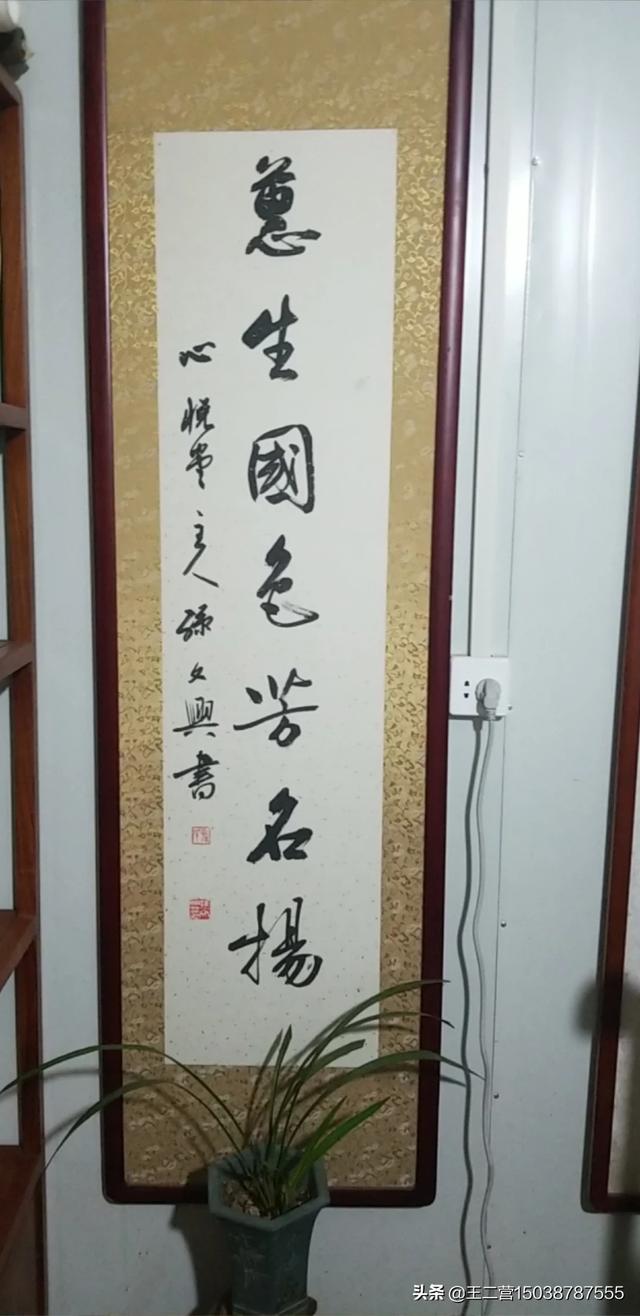 蕙生國色芳名揚
心悦堂主人孫文興書
头条 @王二营15038787555